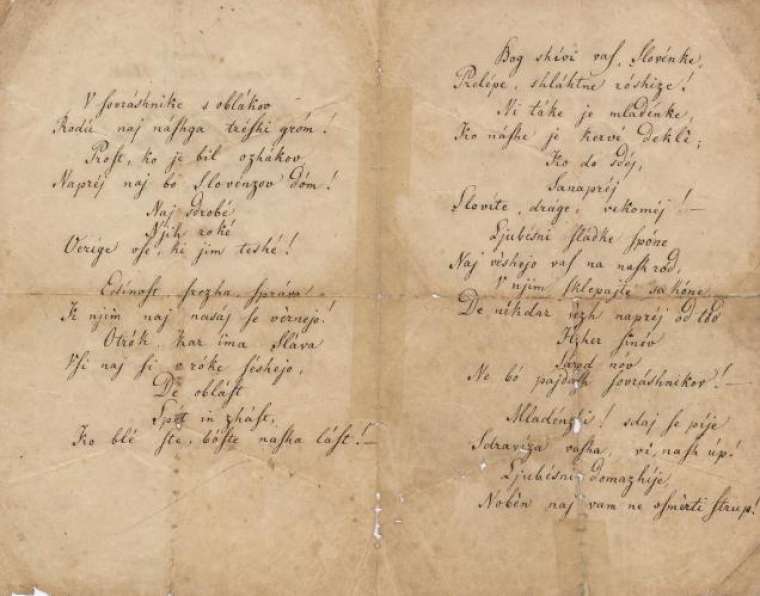 V sovráshnike s oblákov
Rodú naj náshga tréshi gróm!
Prost, ko je bil ozhákov,
Napréj naj bó Slovénzov dóm!
Naj sdrobé
Njih roké
Verige vse, ki jim teshé!
Edinost, srezha, správa
K njim naj nasaj se vèrnejo!
Otrók, kar ima Sláva
Vsi naj si v róke séshejo,
De oblást
in zhást,
Ko bló ste, bóste nasha lást!—
Bog shivi vas, Slovénke,
Prelépe, shláhtne róshize!
Ni táke je mladénke,
Ko náshe je kerví deklè;
Ko do sdéj,
Sanapréj
Slovíte, dráge, vekoméj!—
Ljubésni sladke spóne
Naj véshejo vas na nash ród,
V njim sklepajte sakóne,
De nikdar vezh napréj od tód
Hzher sinóv
Sárod nóv
Ne bó pajdásh sovráshnikov!—
Mladénzhi! sdaj se pije
Sdraviza vasha, vi, nash úp!
Ljubésni domazhíje,
Nobèn naj vam ne vsmèrti strup!